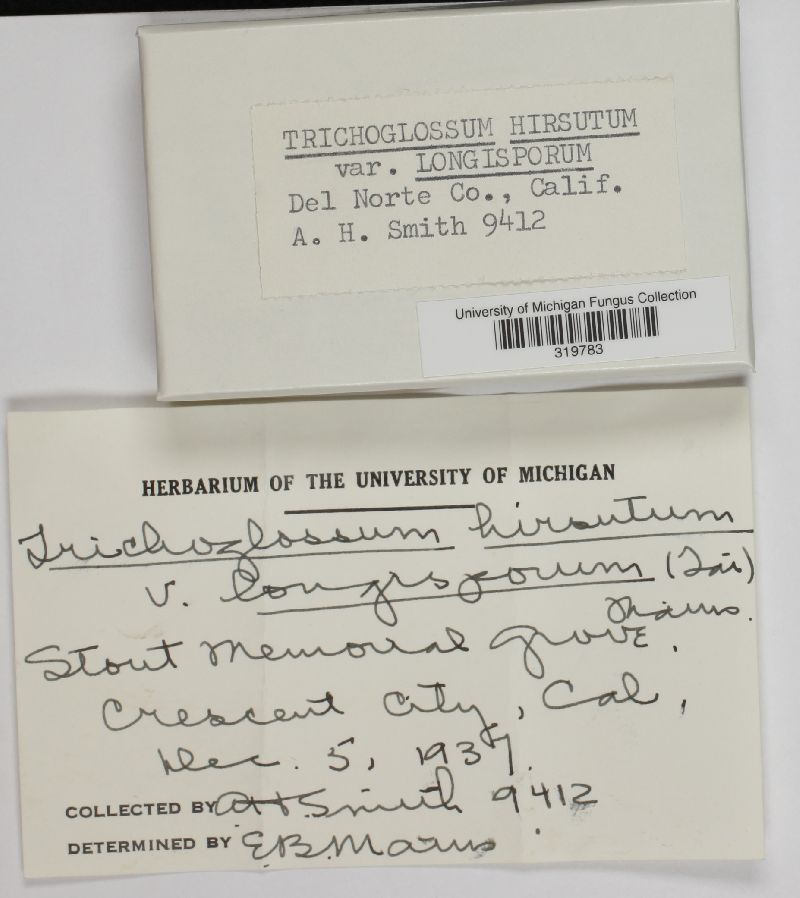 TRICHOGLOSSUM HIRSUTUM
var. LONGISPORUM
Del Norte Co., Calif.
A. H. Smith 9412
University of Michigan Fungus Collection
319783
HERBARIUM OF THE UNIVERSITY OF MICHIGAN
Trichoglossum hirsutum
v. longisporum (Tai)
Mains.
Stout Memorial Grove,
Crescent City, Cal,
Dec. 5, 1937.
COLLECTED BY AHSmith 9412
DETERMINED BY E.B.Mains